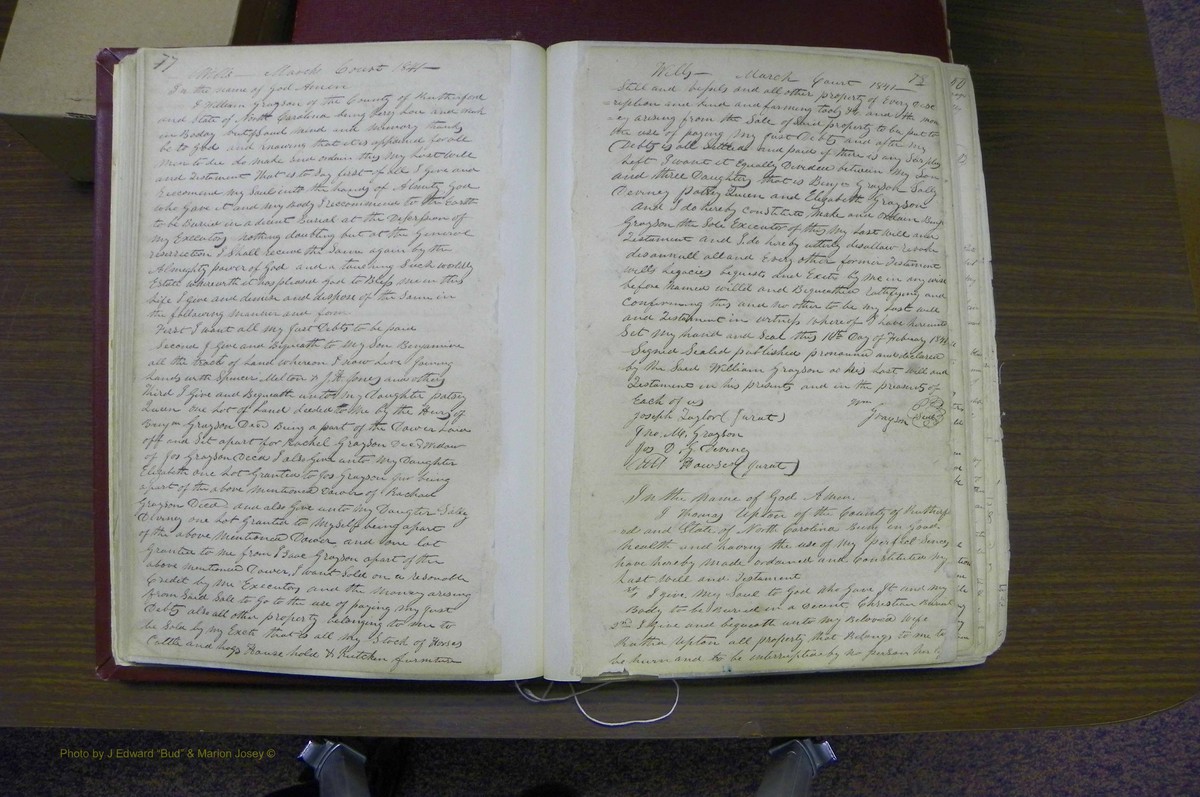 77
Wills — March Court 1841 —
In the name of God Amen
I William Grayson of the County of Rutherford
and State of North Carolina being Very Low and weak
in Boday but of sound mind and memory thanks
be to God and knowing that it is appointed for all
men to die do make and ordain this My Last Will
and Testament That is to say first of all I Give and
Reccomend my Soul into the hands of Almity God
who Gave it and my Body I reccommend to the Earth
to be Buried in a decent Burial at the
my Executors nothing doubting but at the General
resurrection I Shall receive the Same again by the
Almighty power of God and as touching Such worldly
Estate wherewith it has pleased God to Bless me in this
Life I Give and demise and dispose of the Same in
the following manner and form
First I want all my Just Debts to be paid
Second I Give and Bequeath to My Son Benjamine
all the tract of Land whereon I now Live Joining
Lands with Spencer Melton & J.H. Jones and others
Third I Give and Bequeath unto My Daughter Patsy
Queen one Lot of Land deeded to Me by the Heirs of
Grayson Decd Being a part of the Dower Laid
off and Set apart for Rachel Grayson Decd Widow
of Jos Grayson Decd I also Give unto My Daughter
Elizabeth one Lot Granted to Jos Grayson being
apart of the above mentioned Dower of Rachael
Grayson Decd and also Give unto My Daughter Sally
Deviney one Lot Granted to Myself being apart
of the above Mentioned Dower and one lot
Granted to me from Isaac Grayson apart of the
above mentioned Dower, I want Sold on a resonable
Credit by my Executor and the Money arising
from Said Sale to Go to the use of paying my Just
Debts also all other property belonging to me to
be Sold by my Exctr that is all my Stock of Horses
Cattle and hogs House hold & Kitchen furniture
Wills — March Court 1841 — 78
Still and vessels and all other property of Every disc
ription and kind and farming tools &c and the mon
ey arising from the Sale of Said property to be put to
the use of paying My Just Debts and after my
Debts is all Settled and paid if there is any Surplus
Left I want it Equally Devided between My Son
and three Daughters that is Benj Grayson Sally
Deviney Patsy Queen and Elizabeth Grayson
And I do hereby Constitute Make and Ordain Benj
Grayson the Sole Executor of this My Last Will and
Testament and I do hereby utterly disallow revoke
disannull all and Every other former Testament
wills Legacies bequests and Exects by me in any wise
before Named willd and Bequeathed Ratifying and
Confirming this and no other to be My Last will
and Testament in witness Whereof I have hereunto
Set My hand and Seal this 16th Day of Febuary 1841
Signed Sealed published pronounced and declared
by the Said William Grayson as his Last Will and
Testament in his presents and in the presents of
Each of us Wm
Joseph Taylor (Jurat) Grayson (Seal)
Jno. M. Grayson
Jos D. G Deviney
Hawser (Jurat)
In the Name of God Amen.
I Thomas Upton of the County of Rutherf
ord and State of North Carolina Being in Good
health and having the use of my perfect Sences
have hereby made ordained and Constituted My
Last will and Testament
1st I give My Soul to God who Gave It and my
Body to be Buried in a decent Christian Burial
2nd I Give and bequeath unto my Beloved Wife
Upton all property that Belongs to me to
be hurn and to be interrupted by no person
80
Photo by J Edward "Bud" & Marion Josey ©